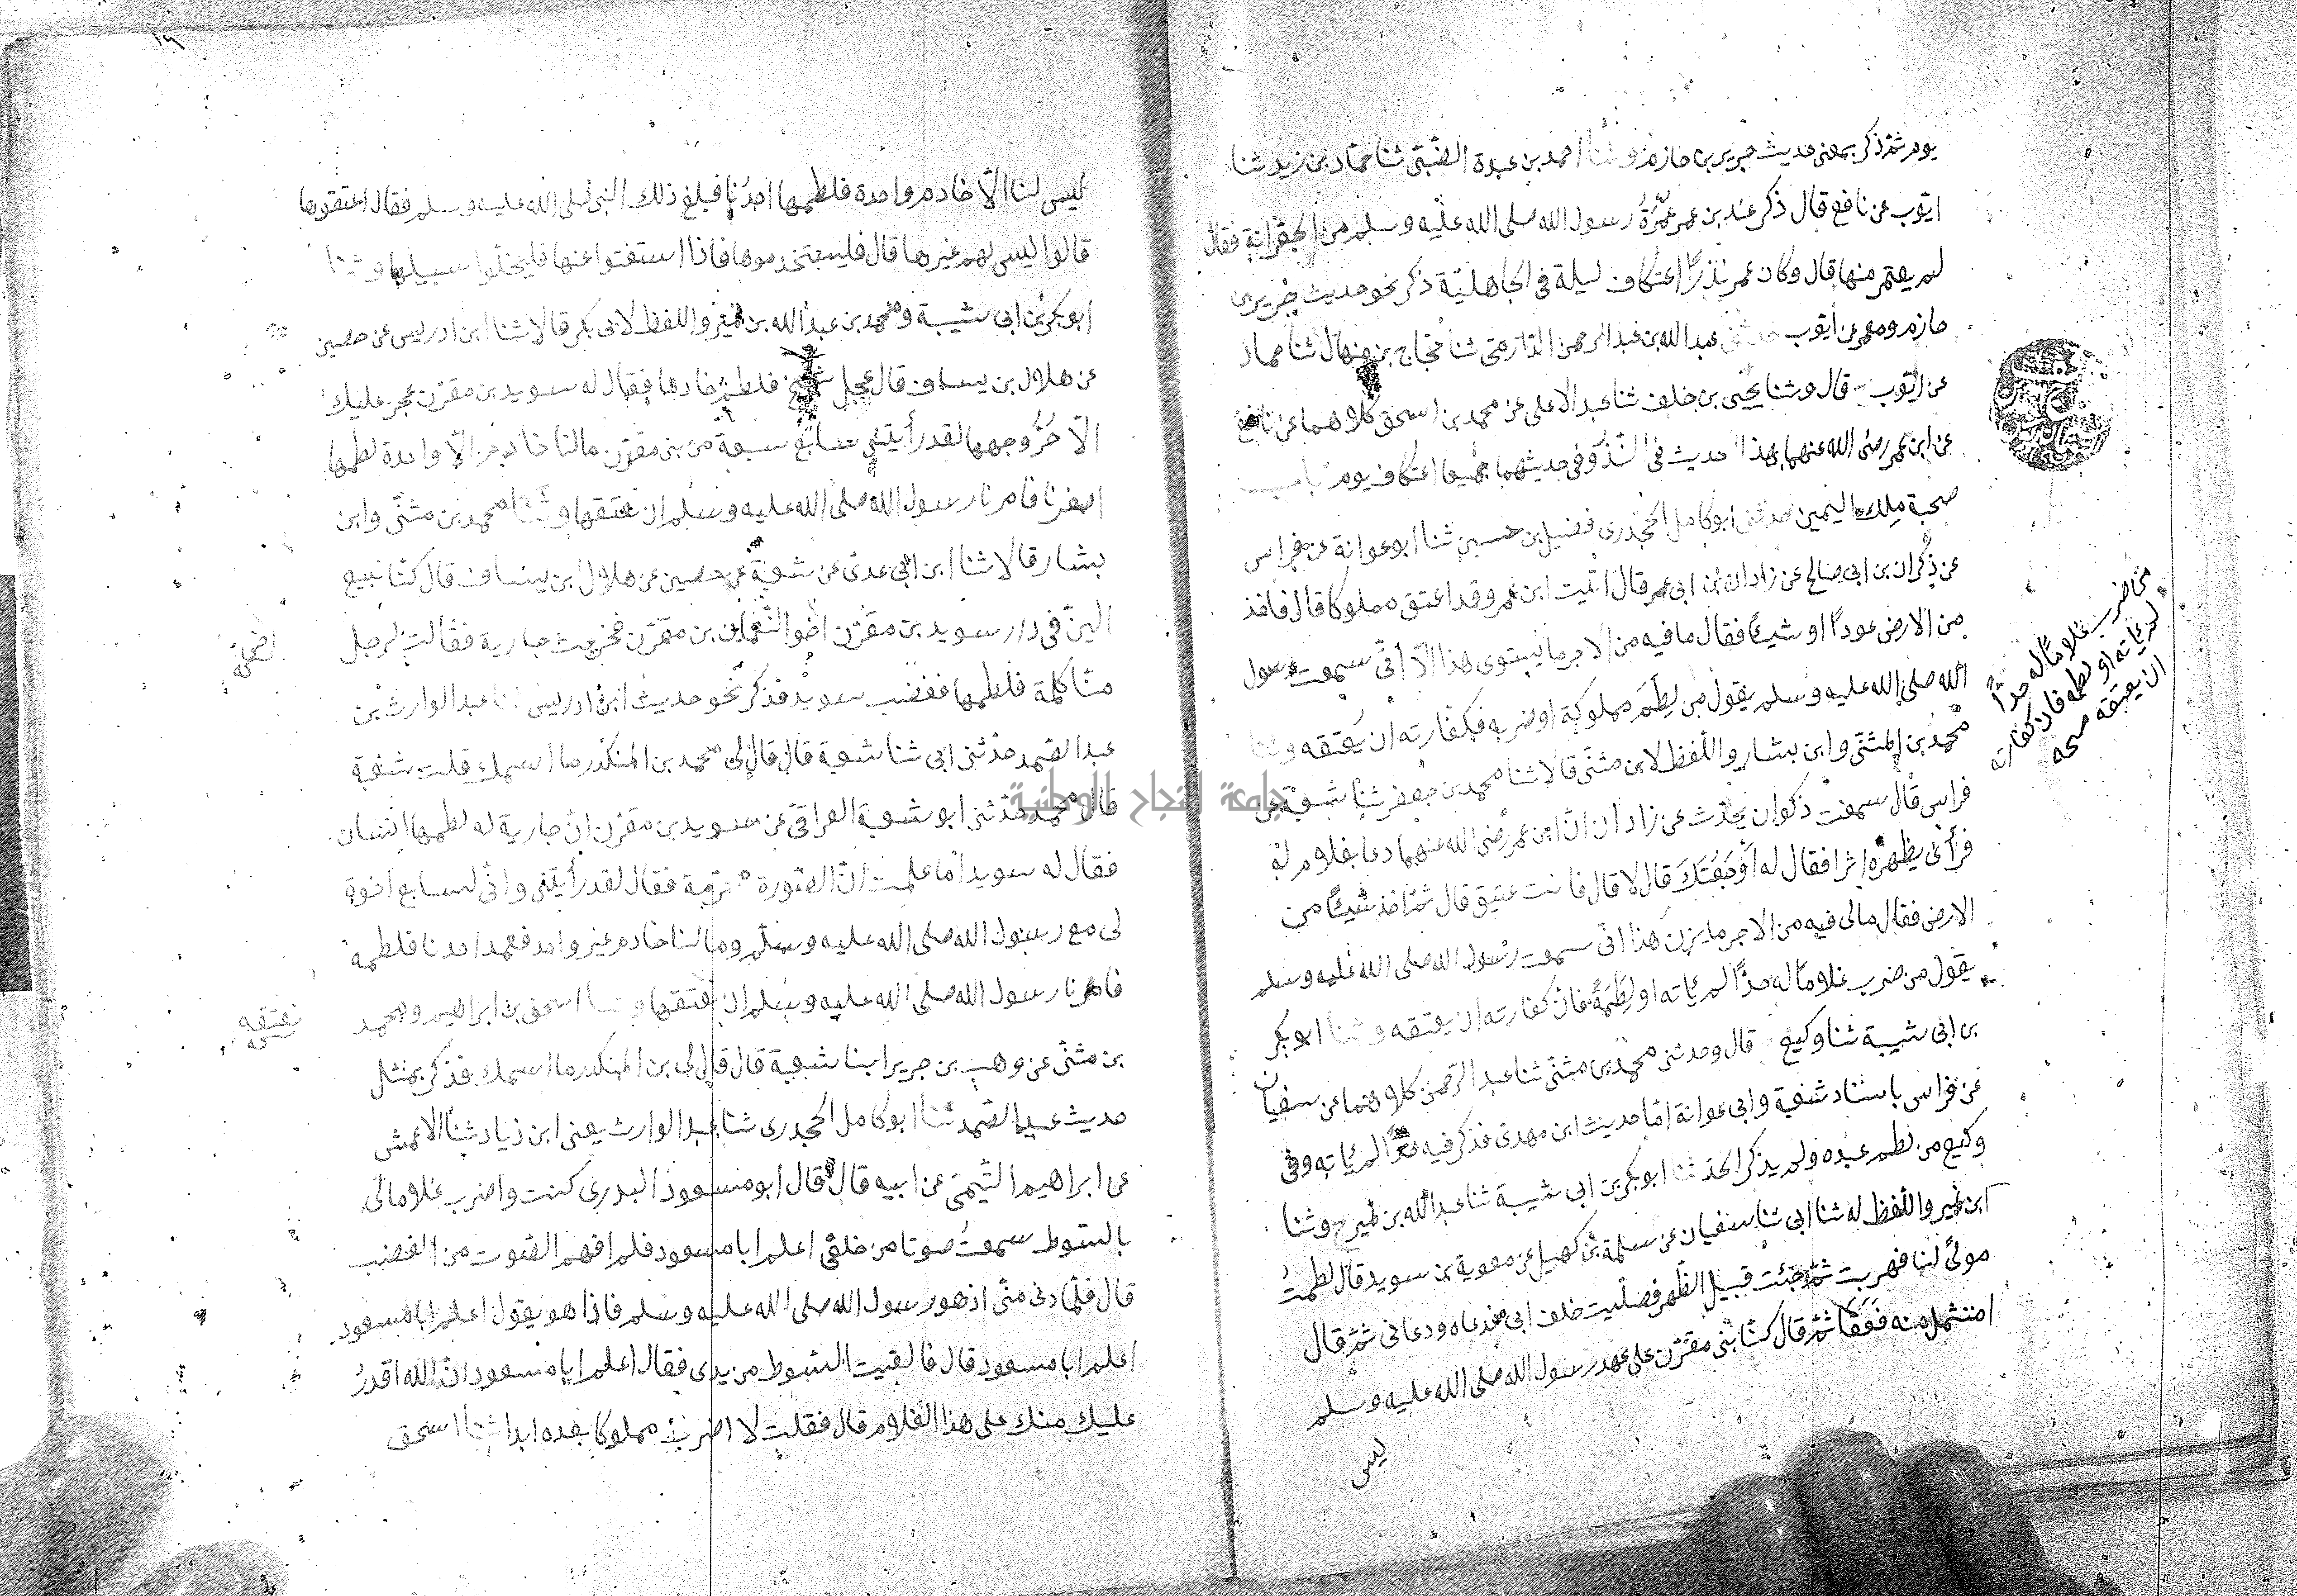 يوم ثم ذكر بمعنى حديث جرير بن حازم وثنا احمد بن عبدة الضّبّى ثنا حمّاد بن زيد ثنا
ايّوب عن نافع قال ذكر عند ابن عمر عُمْرَةُ رسول الله صلى الله عليه وسلم من الجِعْرانة فقال
لم يعتمر منها قال وكان عمر نذر اعتكاف ليلة فى الجاهليّة ذكر نحو حديث جرير بن
حازم ومعمر عن ايّوب حدثنى عبد الله بن عبد الرحمن الدّارمىّ ثنا حجّاج بن منهال ثنا حماد
عن ايّوب ح قال وثنا يحيى بن خلف ثنا عبد الاعلى عن محمد بن اسحق كلاهما عن نافع
عن ابن عمر رضى الله عنهما بهذا الحديث فى النّذر وفى حديثهما جميعا اعتكاف يوم باب
صحبة ملك اليمين حدثنى ابو كامل الجحدرى فضيل بن حسين ثنا ابو عوانة عن فراس
عن ذكوان بن ابى صالح عن زاذان بن ابى عمر قال اتيت ابن عمر وقد اعتق مملوكا قال فاخذ
من الارض عودًا او شيئًا فقال ما فيه من الاجر ما يستوى هذا الّا انّى سمعت رسول
الله صلى الله عليه وسلم يقول من لطم مملوكه او ضربه فكفّارته ان يعتقه وثنا
محمد بن المثنّى وابن بشار واللفظ لابن مثنّى قالا ثنا محمد بن جعفر ثنا شعبة عن
فراس قال سمعت ذكوان يحدّث عن زاذان انّ ابن عمر رضى الله عنهما دعا بغلام له
فرأى بظهره اثرا فقال له اَوْجَعْتُكَ قال لا قال فانت عتيق قال ثم اخذ شيئًا من
الارض فقال مالى فيه من الاجر ما يزن هذا انّى سمعت رسول الله صلى الله عليه وسلم
يقول من ضرب غلامًا له حدًّا لم يأته او لطمه فانّ كفارته ان يعتقه وثنا ابو بكر
بن ابى شيبة ثنا وكيع ح قال وحدثنى محمد بن مثنّى ثنا عبد الرّحمن كلاهما عن سفيان
عن فراس باسناد شعبة وابى عوانة امّا حديث ابن مهدى فذكر فيه حدًّا لم يأته وفى
وكيع من لطم عبده ولم يذكر الحدّ ثنا ابو بكر بن ابى شيبة ثنا عبد الله بن نمير ح وثنا
ابن نمير واللفظ له ثنا ابى ثنا سفيان عن سلمة بن كهيل عن معوية بن سويد قال لطمتُ
مولىً لنا فهربت ثم جئت قبيل الظّهر فصلّيت خلف ابى فدعاه ودعانى ثم قال
امتثل منه فعفا ثم قال كنّا بنى مقرّن على عهد رسول الله صلى الله عليه وسلم
ليس
من ضرب غلامًا له حدًّا
لم يأته او لطمه فان كفارته
ان يعتقه صحه
ليس لنا الّا خادم واحدة فلطمها احدُنا فبلغ ذلك النبى صلى الله عليه وسلم فقال اعتقوها
قالوا ليس لهم غيرها قال فليستخدموها فاذا استغنوا عنها فليخلّوا سبيلها وثنا
ابو بكر بن ابى شيبة ومحمد بن عبد الله بن نمير واللفظ لابى بكر قالا ثنا ابن ادريس عن حصين
عن هلال بن يساف قال عجل شيخ فلطم خادما فقال له سويد بن مقرّن عجز عليك
الّا حُرُّ وجهها لقد رأيتنى سابع سبعة من بنى مقرّن مالنا خادم الّا واحدة لطمها
اصغرنا فامرنا رسول الله صلى الله عليه وسلم ان نعتقها وثنا محمد بن مثنّى وابن
بشار قالا ثنا ابن ابى عدى عن شعبة عن حصين عن هلال بن يساف قال كنّا نبيع
البزّ فى دار سويد بن مقرّن اخو النّعمان بن مقرّن فخرجت جارية فقالت لرجل
منّا كلمة فلطمها فغضب سويد فذكر نحو حديث ابن ادريس ثنا عبد الوارث بن
عبد الصّمد حدّثنى ابى ثنا شعبة قال قال لى محمد بن المنكدر ما اسمك قلت شعبة
قال محمد حدّثنى ابو شعبة العراقىّ عن سويد بن مقرّن انّ جارية له لطمها انسان
فقال له سويد اما علمت انّ الصّورة محرّمة فقال لقد رأيتنى وانّى لسابع اخوة
لى مع رسول الله صلى الله عليه وسلم وما لنا خادم غير واحد فعمد احدنا فلطمه
فامرنا رسول الله صلى الله عليه وسلم ان نعتقها وثنا اسحق بن ابراهيم ومحمد
نعتقه
بن مثنّى عن وهب بن جرير ابنا شعبة قال قال لى بن المنكدر ما اسمك فذكر بمثل
حديث عبد الصّمد ثنا ابو كامل الجحدرى ثنا عبد الوارث يعنى ابن زياد ثنا الاعمش
عن ابراهيم التّيمىّ عن ابيه قال قال ابو مسعود البدرى كنت واضرب غلاما لى
بالسّوط سمعتُ صوتا من خلفى اعلم ابا مسعود فلم افهم الصّوت من الغضب
قال فلمّا دنى منّى اذ هو رسول الله صلى الله عليه وسلم فاذا هو يقول اعلم ابا مسعود
اعلم ابا مسعود قال فالقيت السّوط من يدى فقال اعلم ابا مسعود انّ الله اقدرُ
عليك منك على هذا الغلام قال فقلت لا اضرب مملوكا بعده ابدا ثنا اسحق
جامعة النجاح الوطنية